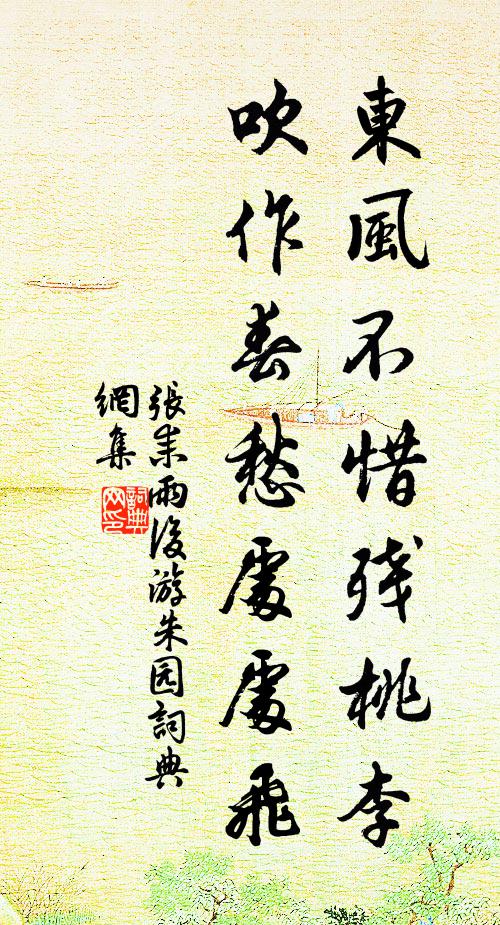 東風不惜残桃李
吹作春愁處處飛
張耒雨後游朱园詞典
網集
詞典网印